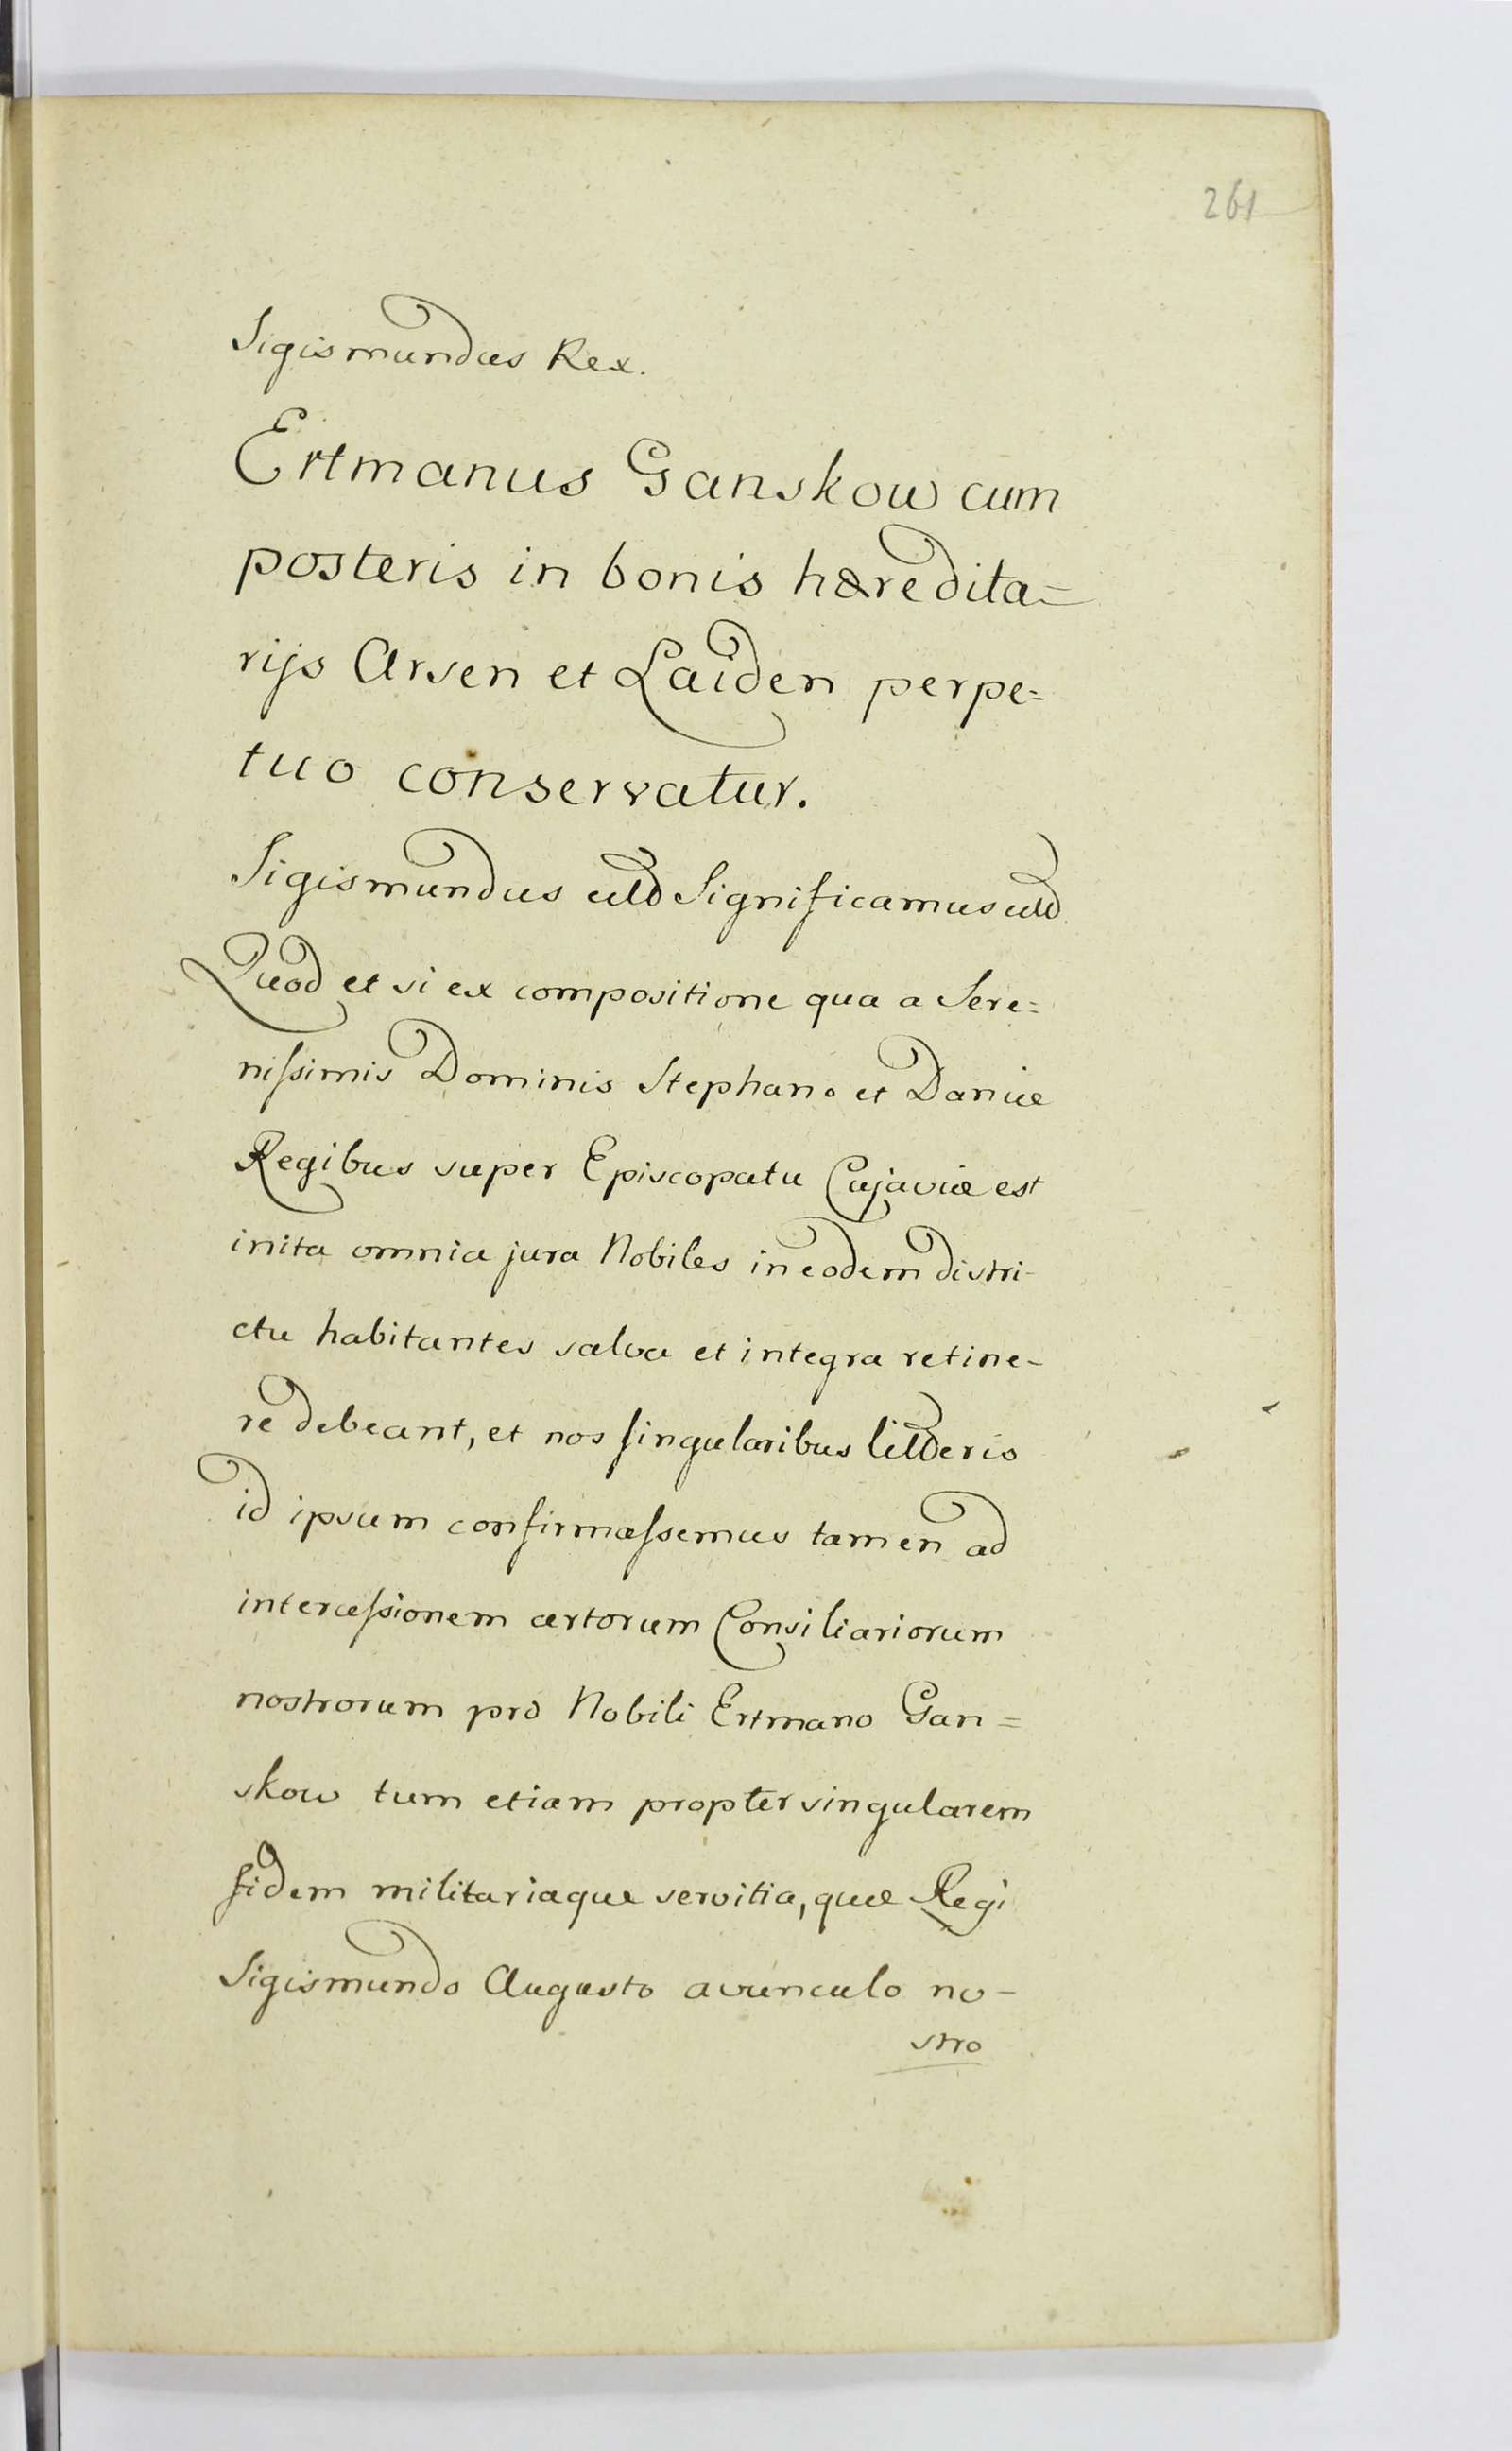 261
Sigismundus Rex.
Ertmanus Ganskow cum
posteris in bonis hæredita=
rijs Arsen et Laiden perpe=
tuo conservatur.
Sigismundus Significamus
Quod et si ex compositione qua a Sere=
nissimis Dominis Stephano et Daniæ
Regibus super Episcopatu Cujaviæ est
inita omnia jura Nobiles in eodem distri-
ctu habitantes salva et integra retine-
re debeant, et nos singularibus
id ipsum confirmassemus tamen ad
intercessionem certorum Consiliariorum
nostrorum pro Nobili Ertmano Gan=
skow tum etiam propter singularem
fidem militariaque servitia, quæ Regi
Sigismundo Augusto avunculo no-
stro